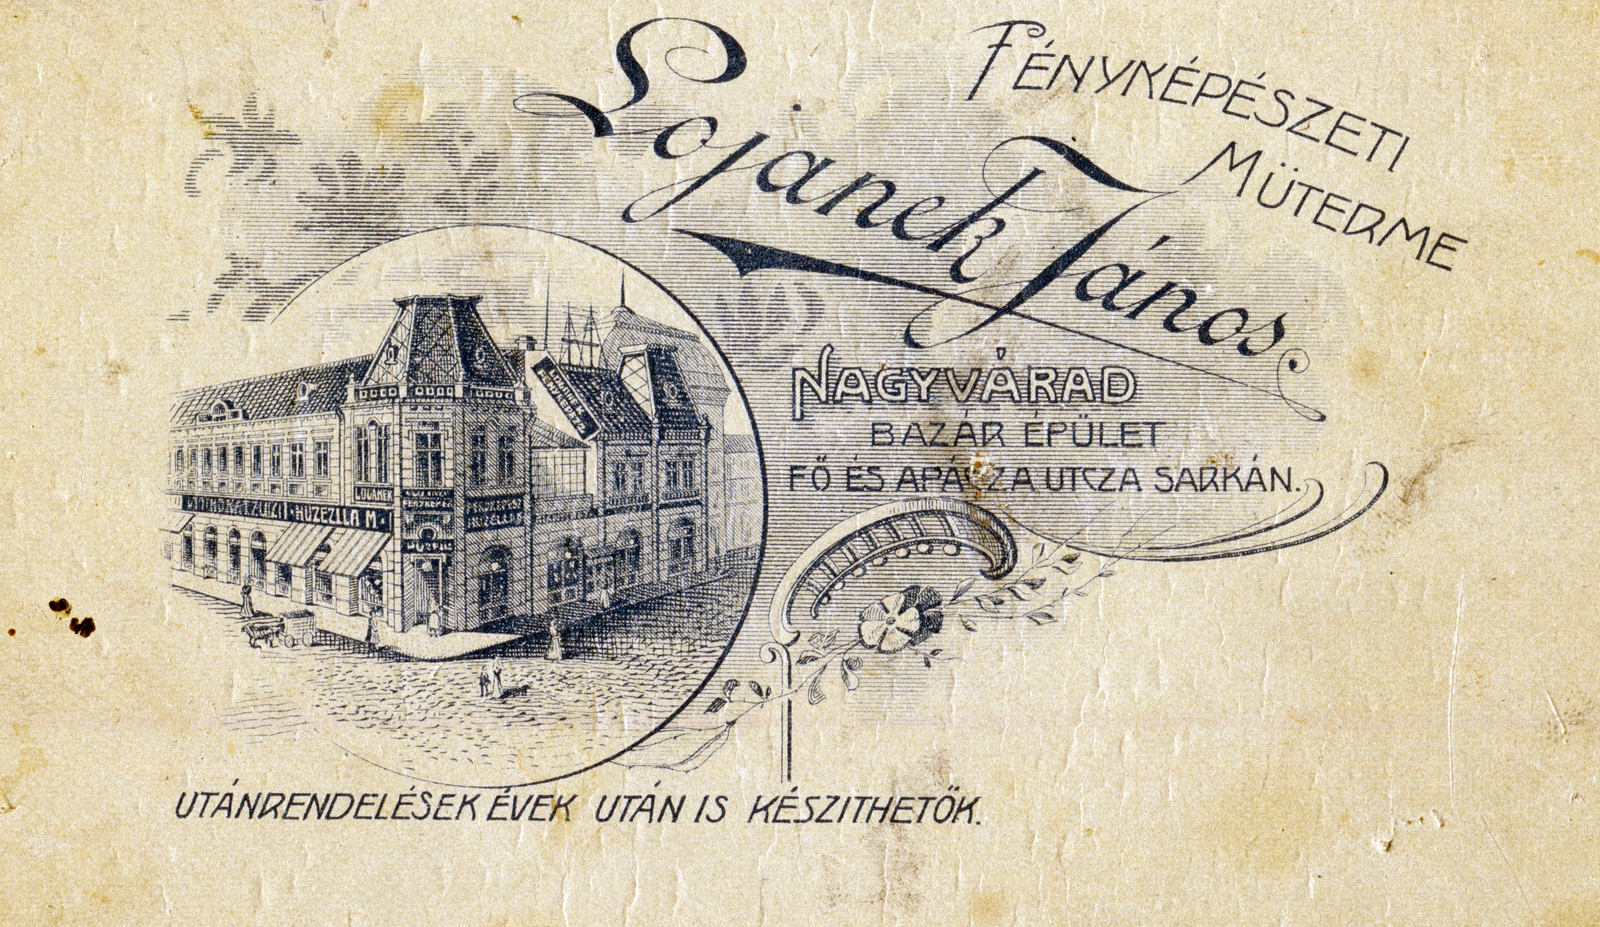 Lojanek János
FÉNYKÉPÉSZETI
MŰTERME
NAGYVÁRAD
BAZÁR ÉPÜLET
FŐ ÉS APÁCZA UTCZA SARKÁN.
HUZELLA M.
LOJANEK
UTÁNRENDELÉSEK ÉVEK UTÁN IS KÉSZITHETŐK.